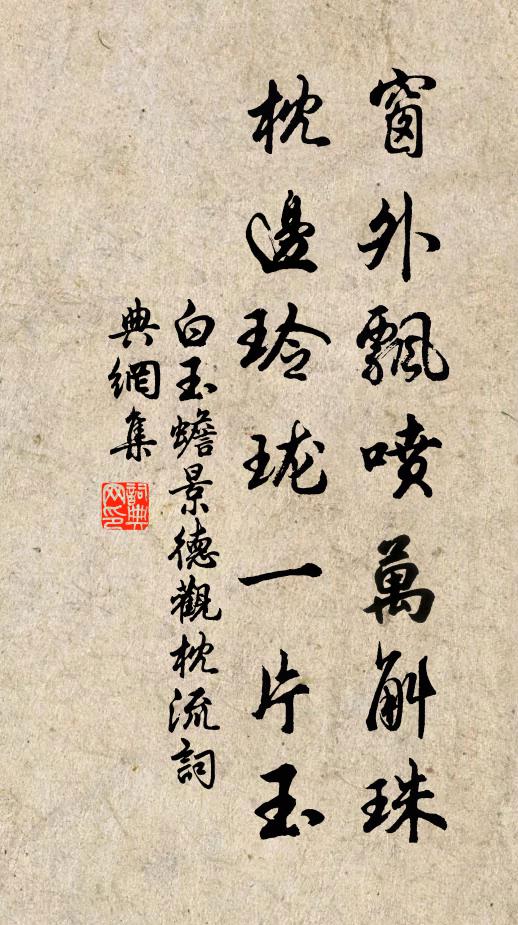 窗外飄噴萬斛珠
枕邊玲瓏一片玉
白玉蟾景德觀枕流詞
典網集
詞典網印